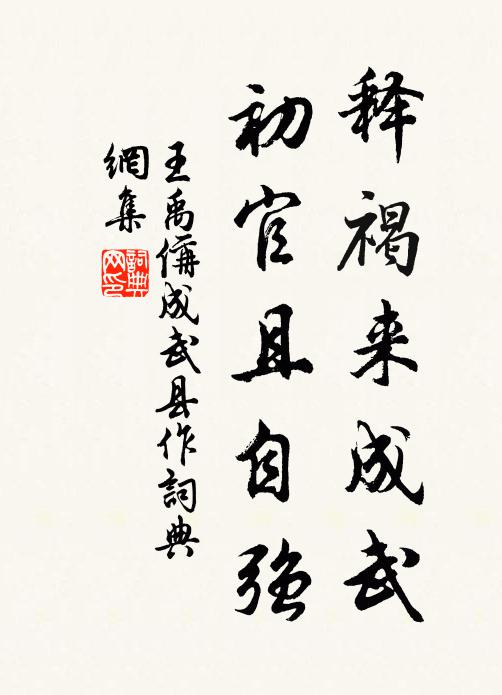 释褐来成武
初官且自强
王禹偁成武县作词典
網集
詞典網印